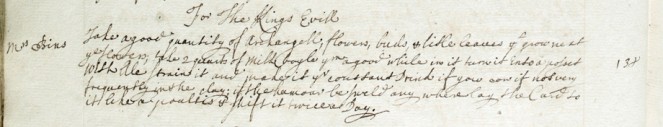 For The Kings Evill
Mrs Bins Take a good quantity of Archangell, flowers, buds, & like leaves yt growe at
ye flowers, take 2 quarts of Milk boyle ym a good while in it turn it into a posset 138
With Ale strain it and make it yr constant Drink if you can if not very
frequently in the day; if the humour be sweld any where lay the Curd to
it like a poultis & shift it twice a Day.